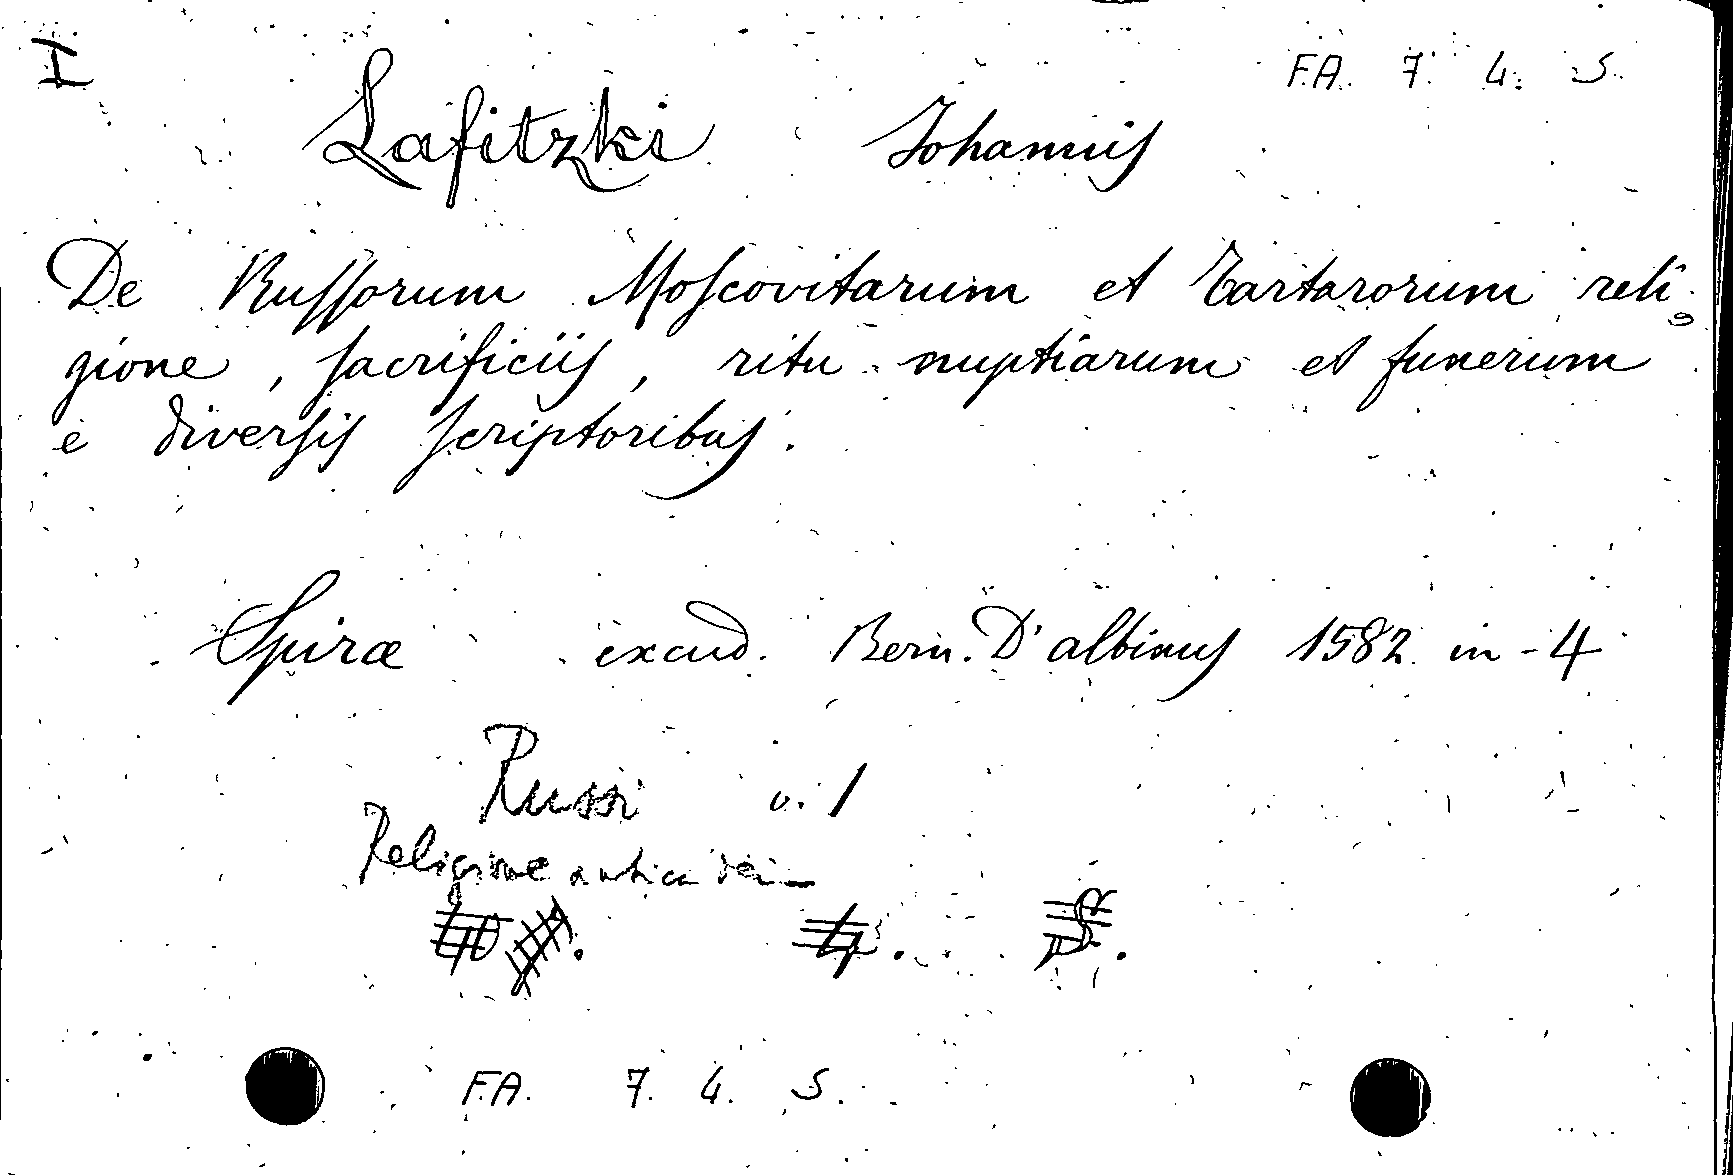 I
F.A. 7. 4. 5.
Lafitzki Johannis
De Russorum Moscovitarum et Tartarorum reli-
gione, sacrificiis, ritu nuptiarum et funerum
e diversis scriptoribus.
Spiræ excud. Bern. D'albinus 1582 in-4
Russi v. /
Religione antica dei —
F.A. 7. 4. 5.